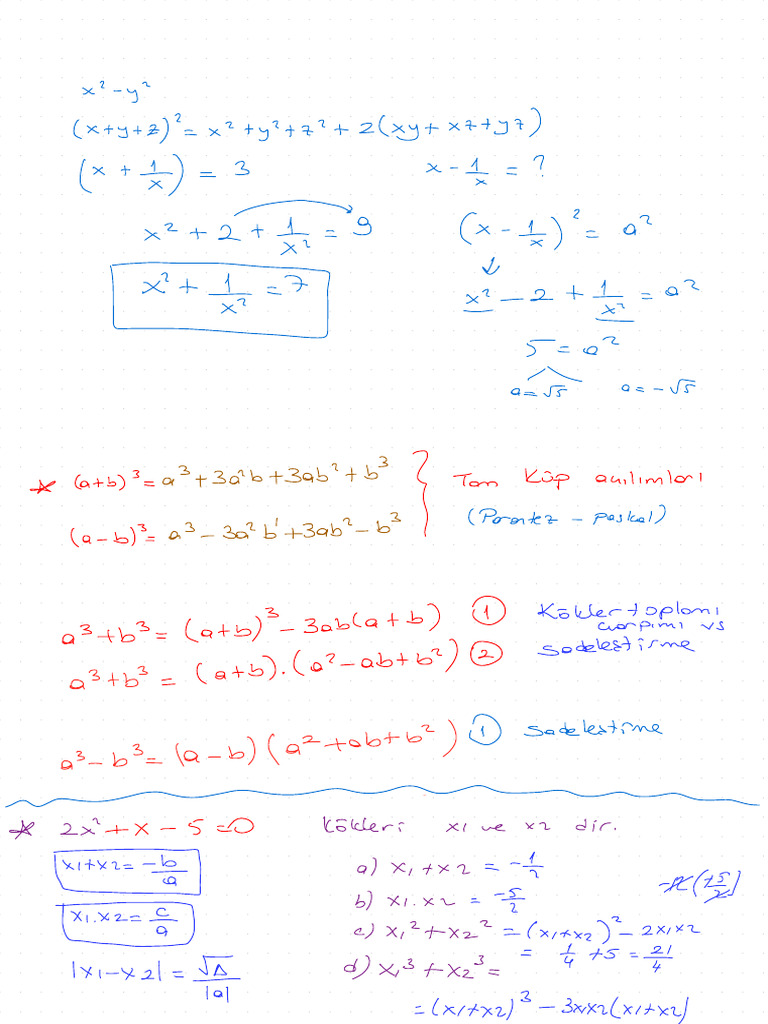 x² - y²
(x+y+z)² = x² + y² + z² + 2(xy + xz + yz)
(x + 1/x) = 3
x - 1/x = ?
x² + 2 + 1/x² = 9
(x - 1/x)² = a²
x² + 1/x² = 7
x² - 2 + 1/x² = a²
5 = a²
a = √5 a = -√5
* (a+b)³ = a³ + 3a²b + 3ab² + b³
Tam Küp açılımları
(a-b)³ = a³ - 3a²b¹ + 3ab² - b³
(Parantez - paskal)
a³ + b³ = (a+b)³ - 3ab(a+b) ① Kökler toplamı
çarpımı vs
a³ + b³ = (a+b).(a² - ab + b²) ② Sadeleştirme
a³ - b³ = (a-b)(a² + ab + b²) ① Sadeleştirme
* 2x² + x - 5 = 0 Kökleri x1 ve x2 dir.
x1+x2 = -b/a
a) x1 + x2 = -1/2
x1.x2 = c/a
b) x1.x2 = -5/2
c) x1² + x2² = (x1+x2)² - 2x1x2
= 1/4 + 5 = 21/4
|x1-x2| = √Δ/|a|
d) x1³ + x2³ =
= (x1+x2)³ - 3x1x2(x1+x2)